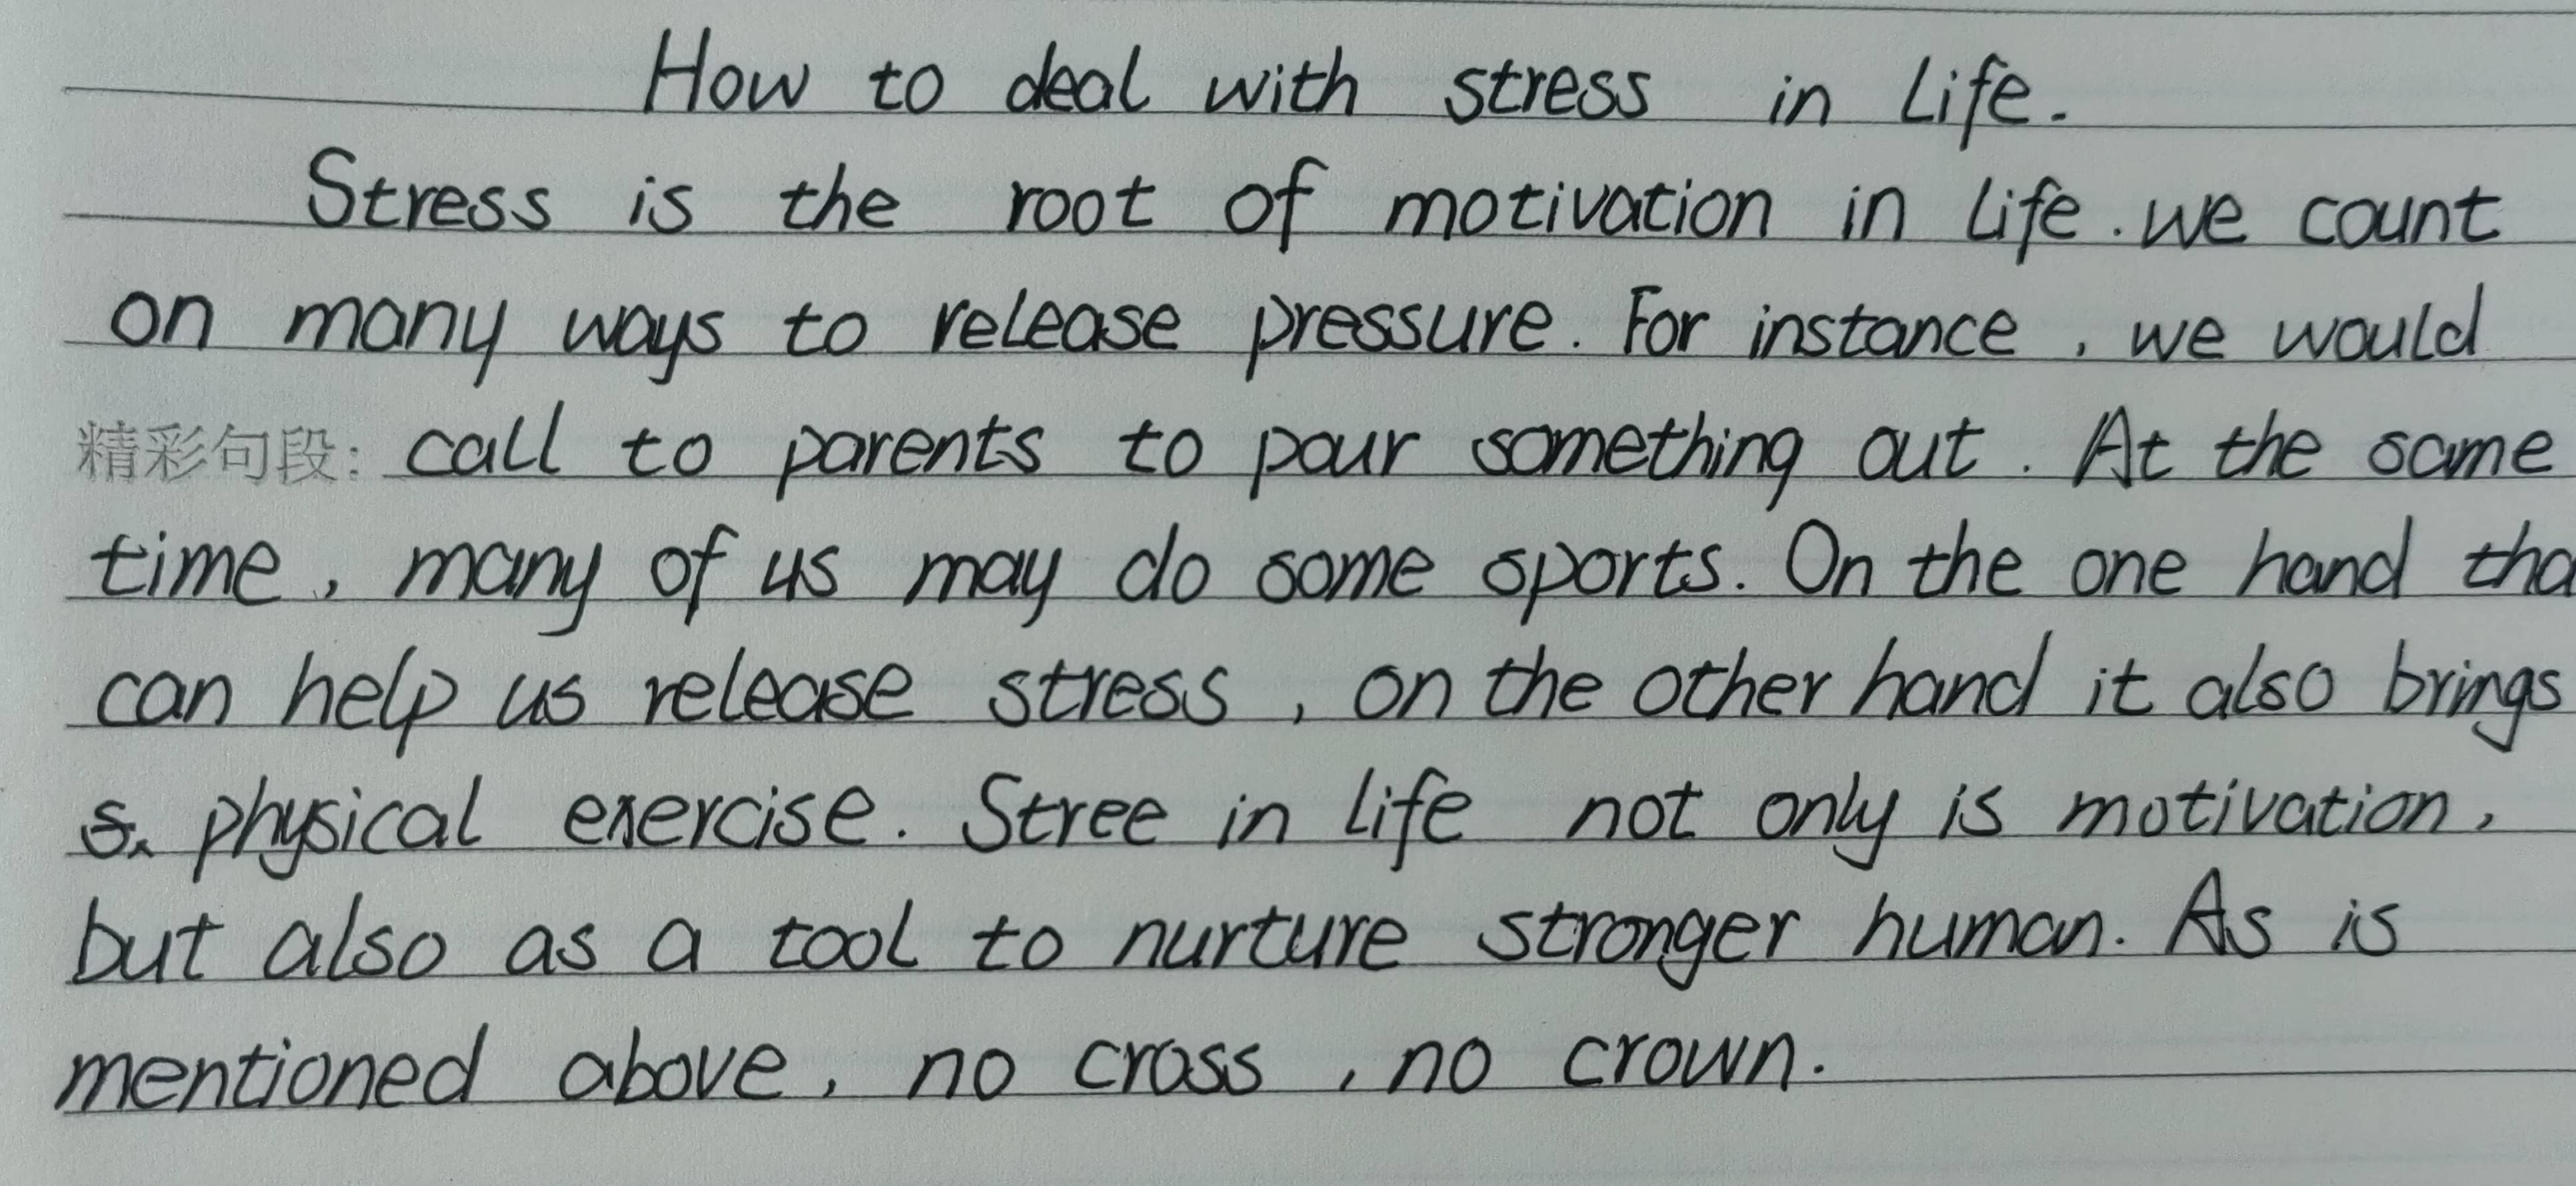 How to deal with stress in Life.
Stress is the root of motivation in Life. we count
on many ways to release pressure. For instance, we would
精彩句段: call to parents to pour something out. At the same
time, many of us may do some sports. On the one hand tha
can help us release stress, on the other hand it also brings
physical exercise. Stree in life not only is motivation,
but also as a tool to nurture stronger human. As is
mentioned above, no cross, no crown.